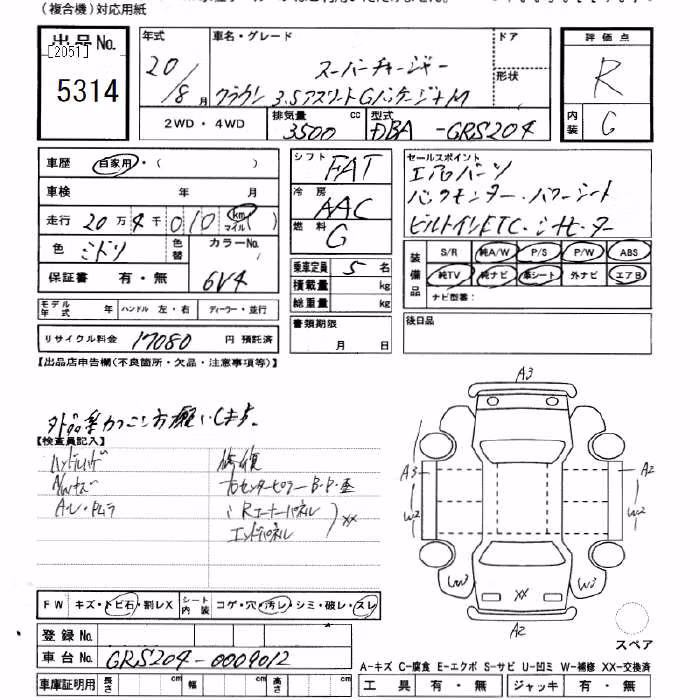 (複合機)対応用紙
出品No.
[2051]
5314
年式
20/8月
車名・グレード
スーパーチャージャー
クラウン 3.5アスリートGパッケージ+M
ドア
形状
評価点
R
内装
G
2WD・4WD
排気量
3500
cc
型式
DBA-GRS204
車歴
自家用・( )
車検 年 月
走行 20万4千010 km マイル( )
色 ミドリ
色替
カラーNo.
6V4
保証書 有・無
モデル年式 年 ハンドル 左・右 ディーラー・並行
リサイクル料金 17080 円 預託済
シフト FAT
冷房 AAC
燃料 G
乗車定員 5 名
積載量 kg
総重量 kg
書類期限
月 日
セールスポイント
エアロパーツ
バックモニター・パワーシート
ビルトインETC・シートヒーター
装備品
S/R 純A/W P/S P/W ABS
純TV 純ナビ 革シート 外ナビ エアB
ナビ型番:
後日品
【出品店申告欄(不良箇所・欠品・注意事項等)】
お願いします。
【検査員記入】
修復
右センターピラーB・P・歪
Rコーナーパネル
エンドパネル
XX
A3
A3
A2
W2
W2
W3
W3
XX
A2
スペア
FW キズ・トビ石・割レX
シート内装 コゲ・穴・汚レ・シミ・破レ・スレ
登録No.
車台No. GRS204-0009012
車庫証明用 長さ cm 幅 cm 高さ cm
A-キズ C-腐食 E-エクボ S-サビ U-凹ミ W-補修 XX-交換済
工具 有・無 ジャッキ 有・無